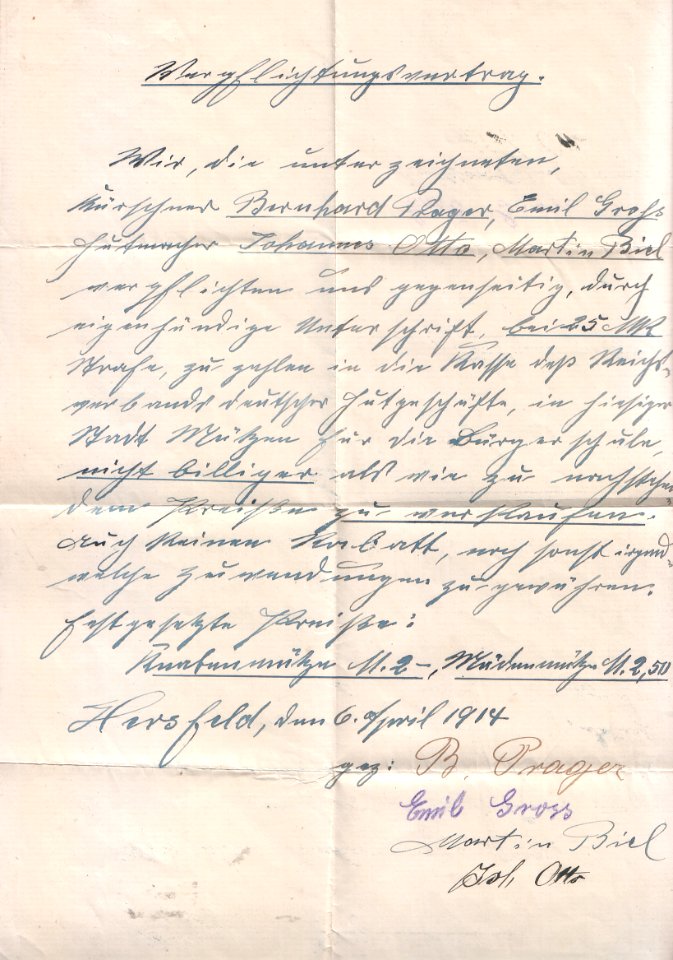 Verpflichtungsvertrag.
Wir, die unterzeichneten,
Kürschner Bernhard Prager, Emil Groß
Hutmacher Johannes Otto, Martin Biel
verpflichten uns gegenseitig, durch
eigenhändige Unterschrift, bei 25 MK
Strafe, zu zahlen in die Kasse deß Reichs-
verbands deutscher Hutgeschäfte, in hiesiger
Stadt Mützen für die Bürgerschule,
nicht billiger als wie zu nachstehen
dem Preiße zu verkaufen.
Auch keinen Rabatt, noch sonst irgend-
welche Zuwendungen zu gewähren.
Festgesetzte Preiße:
Knabenmütze M. 2-, Mädenmütze M. 2,50
Hersfeld, den 6. April 1914
gez: B. Prager
Emil Gross
Martin Biel
Joh. Otto